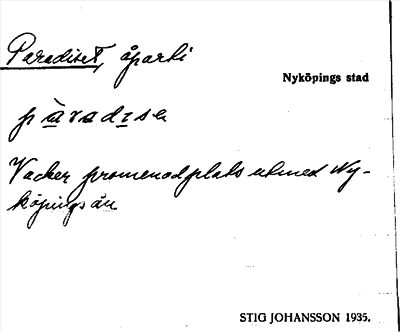 Paradiset, åparti
Nyköpings stad
pàradisa
Vacker promenadplats utmed Ny-
köpingsån
STIG JOHANSSON 1935.